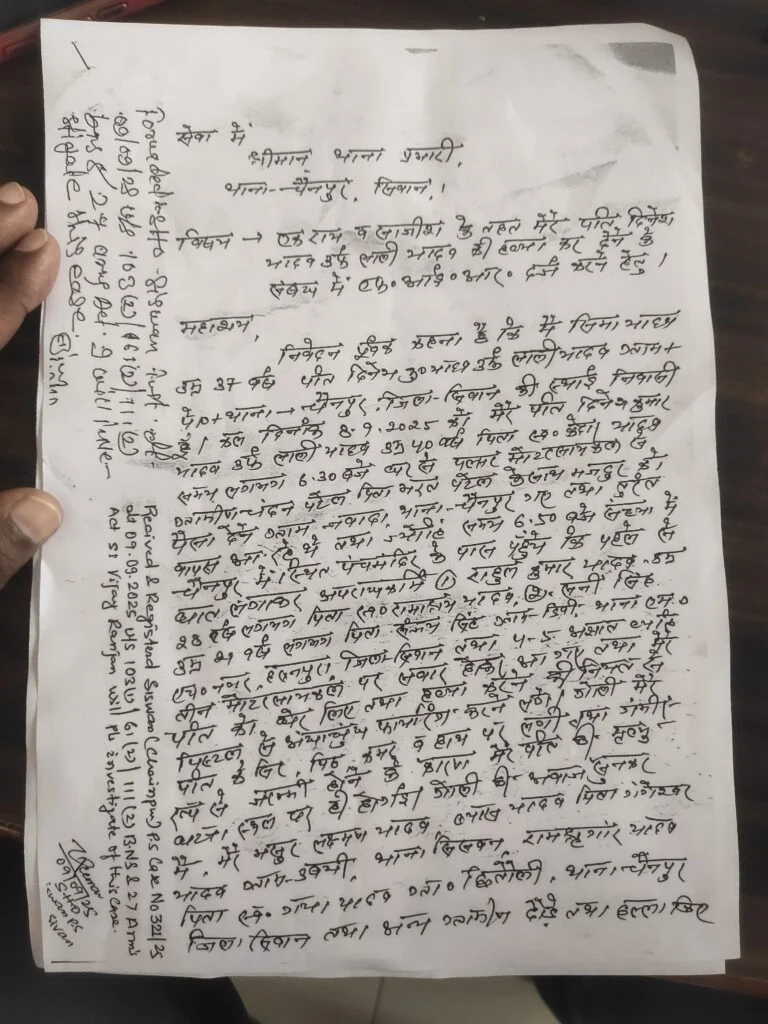 सेवा में
श्रीमान थाना प्रभारी,
थाना - चैनपुर, सिवान,।
विषय → एक राय व साजीश के तहत मेरे पति दिनेश
यादव उर्फ लाली यादव की हत्या कर देने के
संबंध में एफ॰ आई॰ आर॰ दर्ज करने हेतु।
महाशय,
निवेदन पूर्वक कहना है कि मैं सिमा यादव
उम्र 37 वर्ष पति दिनेश कु॰ यादव उर्फ लाली यादव ग्राम+
पो॰+थाना → चैनपुर, जिला-सिवान की स्थाई निवासी
हूँ। कल दिनांक 8-9-2025 को मेरे पति दिनेश कुमार
यादव उर्फ लाली यादव उम्र 40 वर्ष पिता स्व॰ केदार यादव
समय लगभग 6:30 बजे घर से पल्सर मोटरसायकल से
ग्रामीण चंदन पटेल पिता भरत पटेल के साथ मजदुर को
पैसा देने ग्राम - नवादा, थाना - चैनपुर गए तथा तुरंत
वापस आ रहे थे तथा ज्योंहि समय 6:50 बजे संध्या में
चैनपुर में स्थित पंचमंदिर के पास पहुंचे कि पहले से
घात लगाकर अपराधकर्मी ① राहुल कुमार यादव उम्र
28 वर्ष लगभग पिता स्व॰ रामातार यादव, ②. सनी सिंह
उम्र 29 वर्ष लगभग पिता संजय सिंह ग्राम- थाना एम॰
एच॰ नगर, हसनपुरा, जिला-सिवान तथा 4-5 अज्ञात व्यक्ति
तीन मोटरसायकल पर सवार होकर आ गए तथा मेरे
पति को घेर लिए तथा हत्या करने की नियत से
पिस्टल से अंधाधुंध फायरिंग करने लगे। गोली मेरे
पति के सिर, पिठ, कमर व हाथ पर लगी तथा गंभीर
रूप से जख्मी होने के कारण मेरे पति की मृत्यु
घटना स्थल पर ही हो गई। गोली की आवाज सुनकर
मैं, मेरे भसुर लक्ष्मण यादव, व्यास यादव पिता गंगेश्वर
यादव ग्राम-उबधी, थाना सिसवन, रामशृंगार यादव
पिता स्व॰ गया यादव ग्रा॰ छितौली, थाना-चैनपुर
जिला सिवान तथा अन्य ग्रामीण दौड़े तथा हल्ला किए
Forwarded to SHO-Siswan
09/09/25 u/s 103(1)/61(2)/111(2)
BNS & 27 Arms Act. I will inve-
stigate this case.
Recived & Registerd Siswan (Chainpur) PS Case No 321/25
dt 09.09.2025 u/s 103(1) 61(2) 111(2) BNS & 27 Arms
Act SI Vijay Ranjan will PL investigate of this case.
09/09/25
SHO PS
Siwan